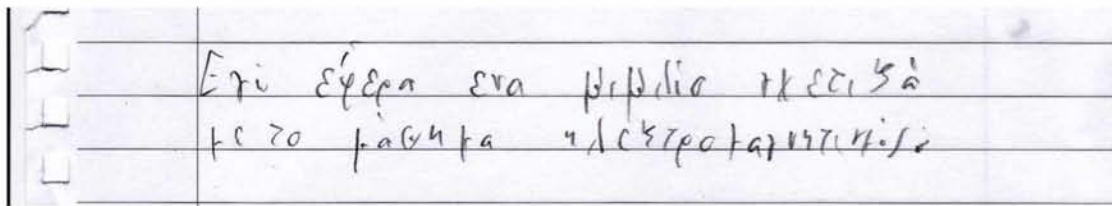 Εγὼ έφερα ενα βιβλίο σχετικά
με το μάθημα ηλεκτρομαγνητισμός